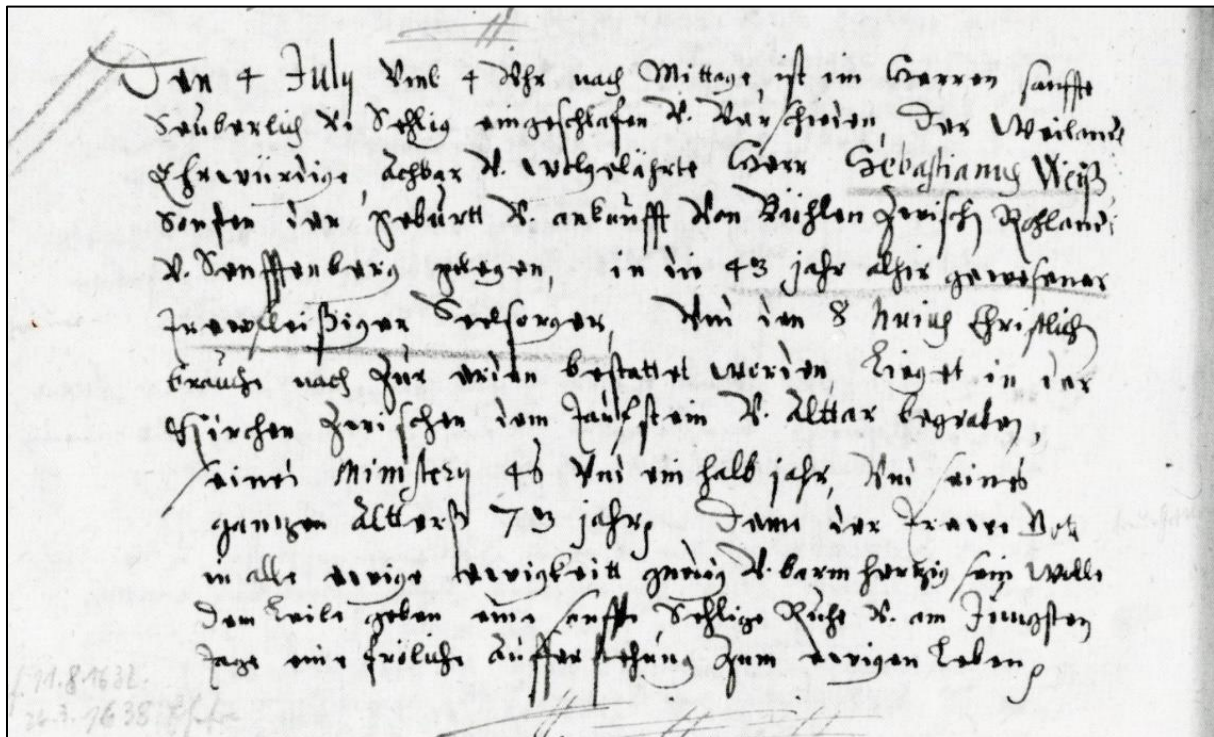 Den 4 July Vmb 4 Vhr nach Mittage ist im Herren sanffte
Seuberlich V. Sehlig eingeschlafen V. Verschieden, Der Weilandt
Ehrwürdige, Achbar V. wolgelährte Herr Sebastianus Weiß
sonsten der geburtt V. ankunfft von Bühlen Zwischen Rohland
V. Senfftenberg gelegen, in die 43 jahr alhir gewesener
Trewfleißiger Seelsorger, Vnd den 8 huius Christlichen
brauche nach Zur erden bestattet worden, Lieget in der
Kirchen Zwischen dem Tauffstein V. Alttar begraben,
seines Ministery 46 Vnd ein halb jahr, Vnd seines
gantzen Altterß 73 jahr, Deme der Trewe Gott
in alle ewige ewigkeitt gnedig V. barmhertzig sein Wolle
Dem Leibe geben eine sanffte Sehlige Ruhe V. am Jüngsten
Tage eine fröliche Aufferstehung Zum ewigen Leben
11.8.1632.